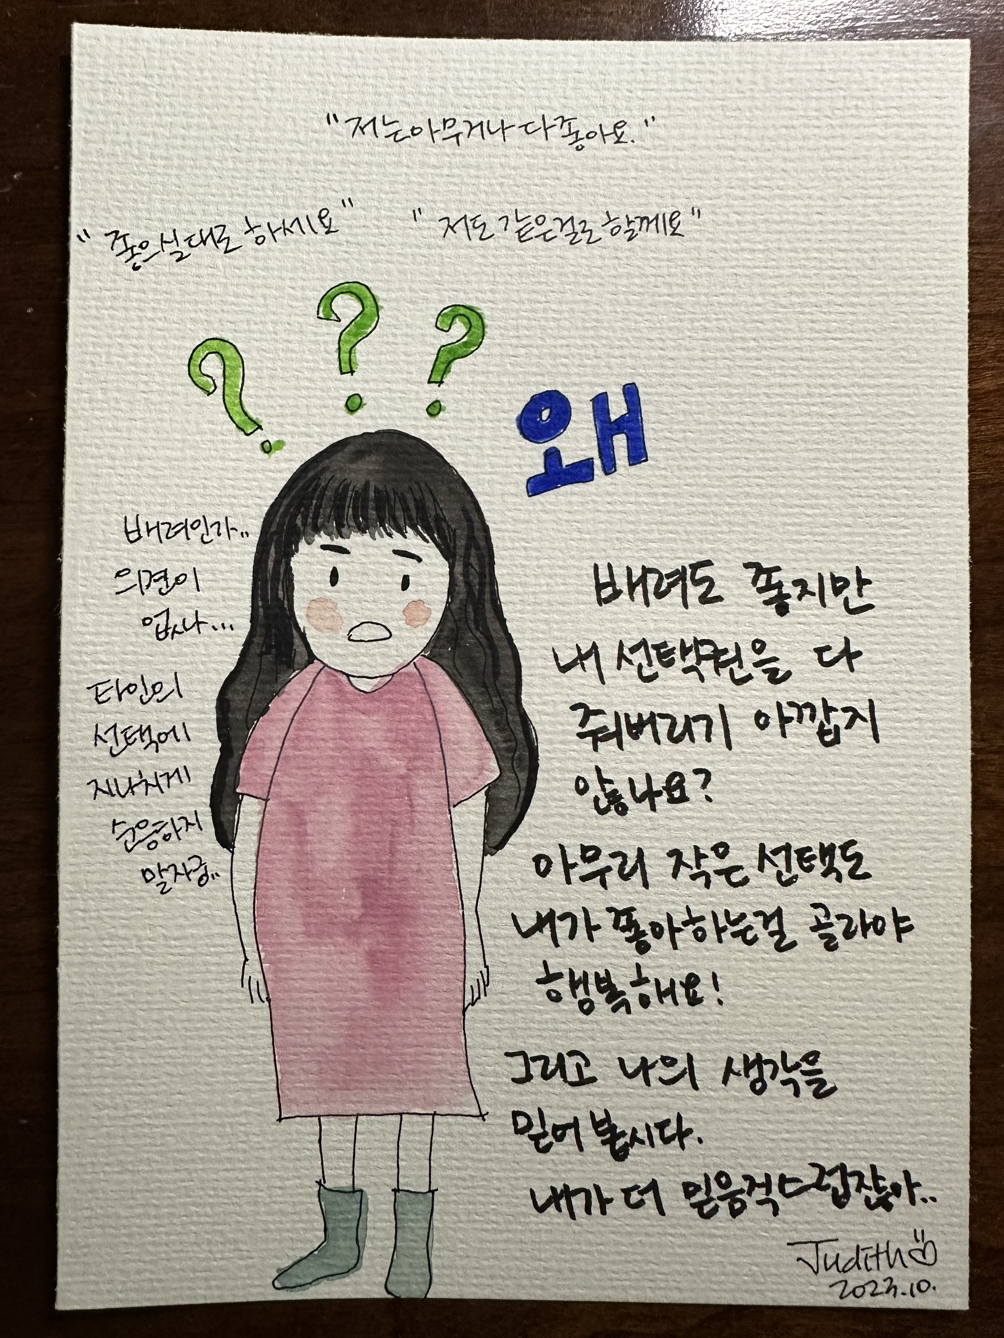 "저는 아무거나 다 좋아요."
"좋으실대로 하세요"
"저도 같은걸로 할께요"
? ? ?
왜
배려인가..
의견이
없나...
타인의
선택에
지나치게
순응하지
말자궁..
배려도 좋지만
내 선택권을 다
줘버리기 아깝지
않나요?
아무리 작은 선택도
내가 좋아하는걸 골라야
행복해요!
그리고 나의 생각을
믿어 봅시다.
내가 더 믿음직스럽잖아..
Judith
2023.10.